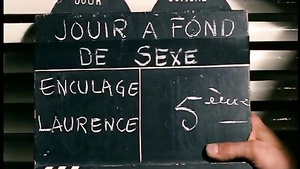 JOUR
JOUIR A FOND
DE SEXE
ENCULAGE
LAURENCE
5ème